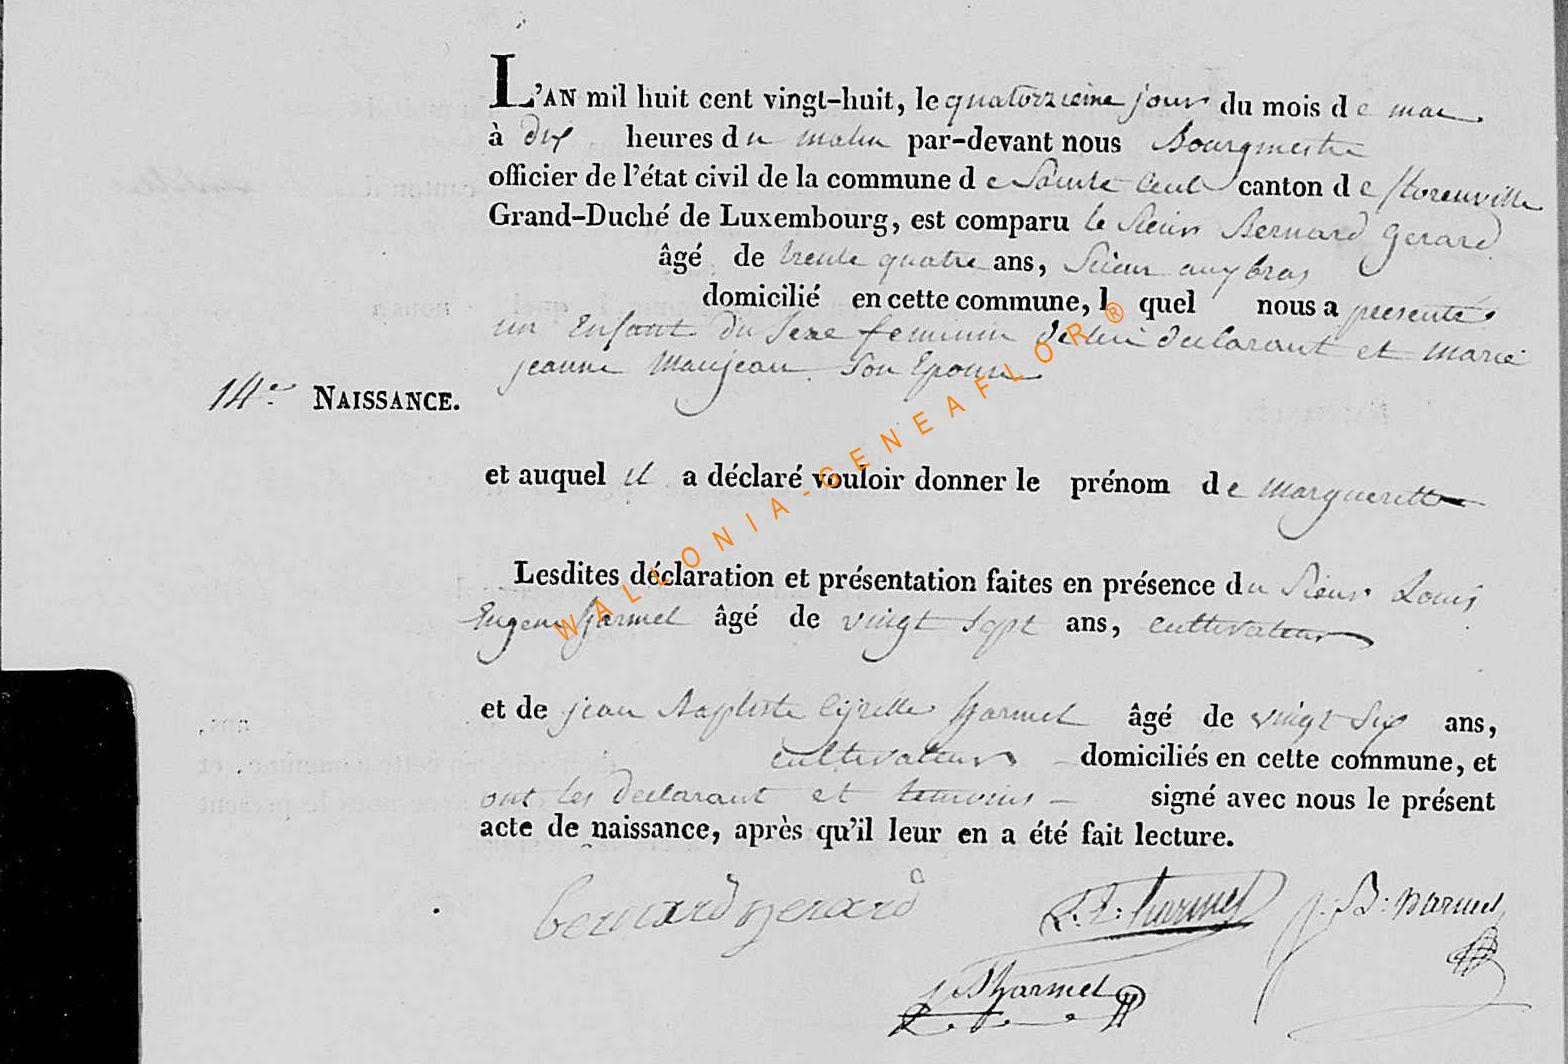 L'AN mil huit cent vingt-huit, le quatorzieme jour du mois de mai
à dix heures du matin par-devant nous Bourgmestre
officier de l'état civil de la commune de Sainte Cecile canton de florenville
Grand-Duché de Luxembourg, est comparu le Sieur Bernard Gerard
âgé de trente quatre ans, Scieur
domicilié en cette commune, lequel nous a presenté
un Enfant du Sexe feminin de lui declarant et Marie
jeanne Maujean Son Epouse
14e NAISSANCE.
et auquel il a déclaré vouloir donner le prénom de margueritte
Lesdites déclaration et présentation faites en présence du Sieur Louis
Eugene harmel âgé de vingt sept ans, cultivateur
et de jean Baptiste Cyrille harmel âgé de vingt Six ans,
cultivateur domiciliés en cette commune, et
ont les declarant et temoins signé avec nous le présent
acte de naissance, après qu'il leur en a été fait lecture.
bernard gerard L: E: harmel j: B: harmel
harmel
WALLONIA-GENEAFLOR®